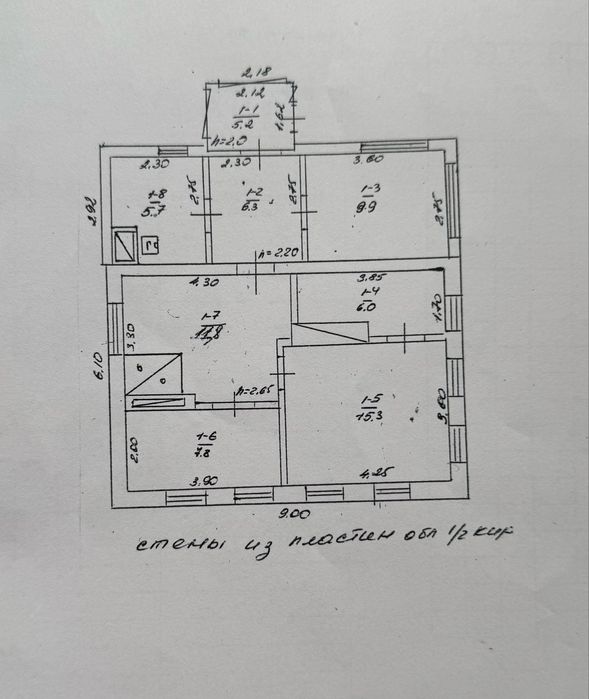 2.18
2.12
1-1
5.2
1.62
h=2.0
2.30
2.30
3.60
2.92
1-8
5.7
2.75
1-2
6.3
2.75
1-3
9.9
2.75
h=2.20
4.30
3.85
1-4
6.0
1.70
1-7
11,8
3.30
6.10
h=2.65
1-5
15.3
3.60
1-6
7.8
2.00
3.90
4.25
9.00
стены из пластин обл 1/2 кир